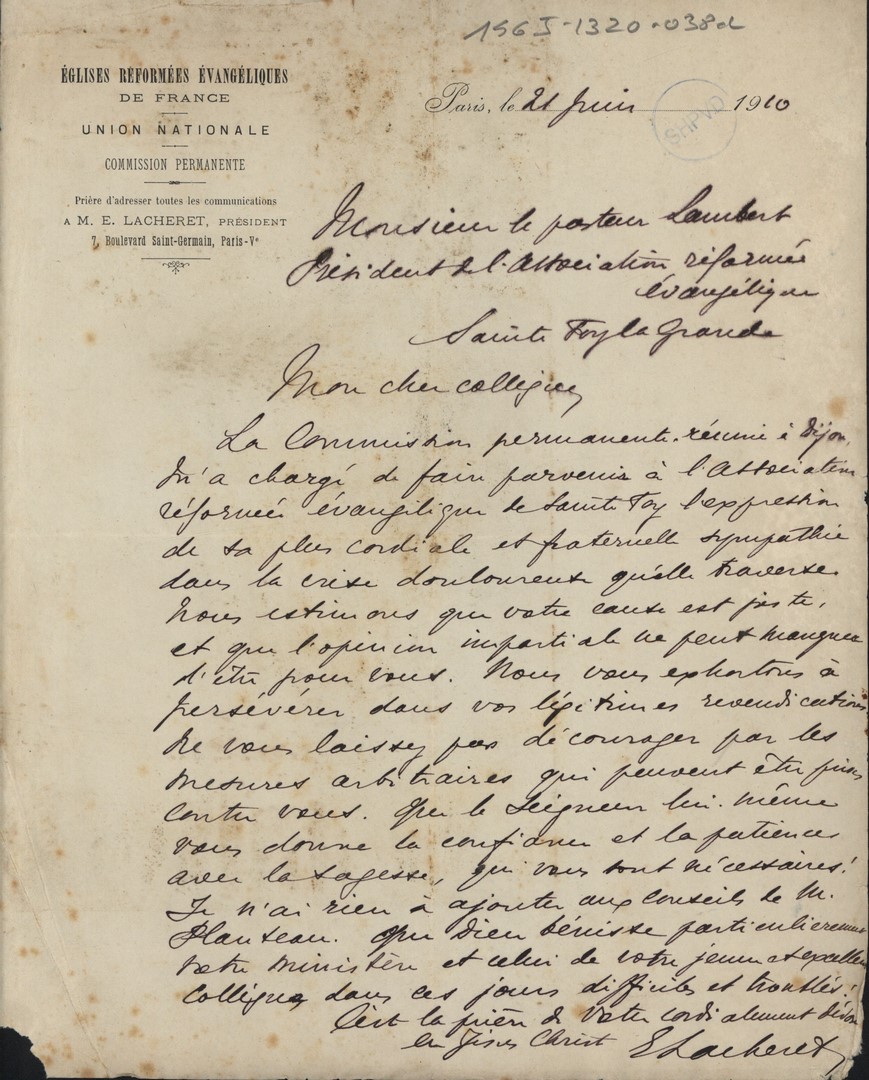 156 J-1320-038d
ÉGLISES RÉFORMÉES ÉVANGÉLIQUES
DE FRANCE
UNION NATIONALE
COMMISSION PERMANENTE
Prière d'adresser toutes les communications
A M. E. LACHERET, PRÉSIDENT
7, Boulevard Saint-Germain, Paris-Vᵉ
Paris, le 21 Juin 1910
SHPVD
Monsieur le pasteur Lambert
Président de l'Association réformée
évangélique
Sainte Foy la Grande
Mon cher collègue,
La Commission permanente réunie à Dijon,
m'a chargé de faire parvenir à l'Association
réformée évangélique de Sainte Foy l'expression
de sa plus cordiale et fraternelle sympathie
dans la crise douloureuse qu'elle traverse.
Nous estimons que votre cause est juste,
et que l'opinion impartiale ne peut manquer
d'être pour vous. Nous vous exhortons à
persévérer dans vos légitimes revendications
Ne vous laissez pas décourager par les
mesures arbitraires qui peuvent être prises
contre vous. Que le Seigneur lui-même
vous donne la confiance et la patience
avec la sagesse, qui vous sont nécessaires!
Je n'ai rien à ajouter aux conseils de M.
Planteau. Que Dieu bénisse particulièrement
votre ministère et celui de votre jeune et excellent
collègue dans ces jours difficiles et troublés!
C'est la prière de votre cordialement dévoué
en Jésus Christ
E Lacheret